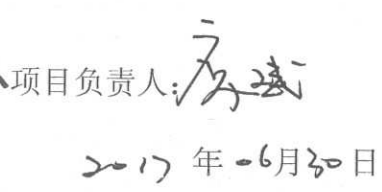 项目负责人:
2017 年 06月30日